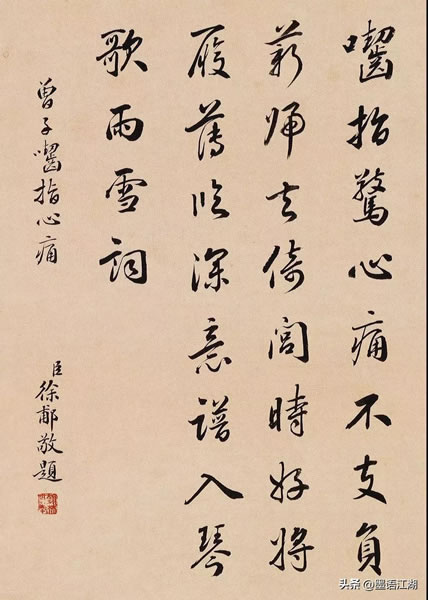 囓指驚心痛不支負
薪歸去倚閭時好將
履薄臨深意譜入琴
歌雨雪詞
曾子囓指心痛
臣徐郙敬題
头条 @墨语江湖